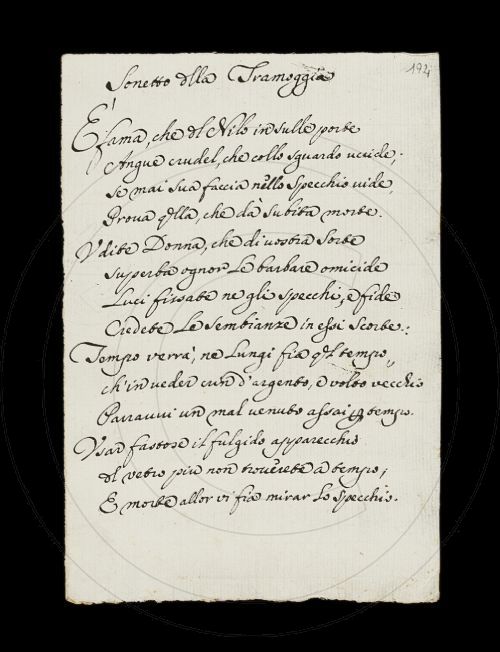 Sonetto dlla Tramoggia
194
È fama, che dl Nilo in sulle porte
Angue crudel, che collo sguardo uccide;
Se mai sua faccia nello Specchio vide,
Prova qlla, che dà subita morte.
Vdite Donna, che di vostra Sorte
Superba ognor Le barbare omicide
Luci fissate ne gli specchi, e fide
Credete Le Sembianze in essi Scorte:
Tempo verrà, ne Lungi fia ql tempo,
ch'in veder crin d'argento, e volto vecchio
Parravvi un mal venuto assai p tempo.
Vsar fastose il fulgido apparecchio
dl vetro più non trouerete à tempo;
E morte allor vi fia mirar Lo Specchio.